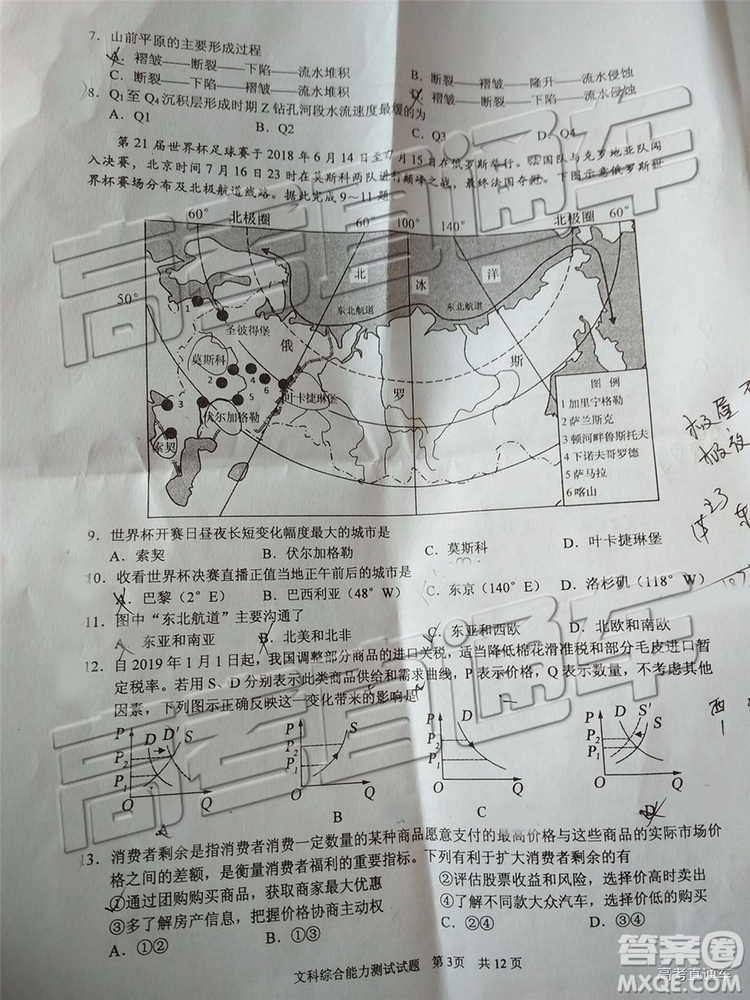 7. 山前平原的主要形成过程
A. 褶皱——断裂——下陷——流水堆积
B. 褶皱——断裂——下陷——流水侵蚀
C. 断裂——褶皱——下陷——流水堆积
D. 断裂——褶皱——隆升——流水侵蚀
8. Q1 至 Q4 沉积层形成时期 Z 钻孔河段水流速度最缓的为
A. Q1 B. Q2 C. Q3 D. Q4
第 21 届世界杯足球赛于 2018 年 6 月 14 日至 7 月 15 日在俄罗斯举行。法国队与克罗地亚队闯
入决赛，北京时间 7 月 16 日 23 时在莫斯科两队进行巅峰之战，最终法国夺冠。下图示意俄罗斯世
界杯赛场分布及北极航道线路。据此完成 9～11 题。
60° 北极圈 60° 100° 140° 北极圈 60°
50°
北 冰 洋
东北航道 东北航道
圣彼得堡
俄 罗 斯
莫斯科
叶卡捷琳堡
伏尔加格勒
索契
1 2 3 4 5 6
图 例
1 加里宁格勒
2 萨兰斯克
3 顿河畔鲁斯托夫
4 下诺夫哥罗德
5 萨马拉
6 喀山
9. 世界杯开赛日昼夜长短变化幅度最大的城市是
A. 索契 B. 伏尔加格勒 C. 莫斯科 D. 叶卡捷琳堡
10. 收看世界杯决赛直播正值当地正午前后的城市是
A. 巴黎（2° E） B. 巴西利亚（48° W） C. 东京（140° E） D. 洛杉矶（118° W）
11. 图中“东北航道”主要沟通了
A. 东亚和南亚 B. 北美和北非 C. 东亚和西欧 D. 北欧和南亚
12. 自 2019 年 1 月 1 日起，我国调整部分商品的进口关税，适当降低棉花滑准税和部分毛皮进口暂
定税率。若用 S、D 分别表示此类商品供给和需求曲线，P 表示价格，Q 表示数量，不考虑其他
因素，下列图示正确反映这一变化带来的影响是
P P2 P1 O Q D D′ S
P P2 P1 O Q S
P P2 P1 O Q D
P P2 P1 O Q D S′ S
A B C D
13. 消费者剩余是指消费者消费一定数量的某种商品愿意支付的最高价格与这些商品的实际市场价
格之间的差额，是衡量消费者福利的重要指标。下列有利于扩大消费者剩余的有
①通过团购购买商品，获取商家最大优惠 ②评估股票收益和风险，选择价高时卖出
③多了解房产信息，把握价格协商主动权 ④了解不同的大众汽车，选择价低的购买
A. ①② B. ①③ C. ②④ D. ③④
文科综合能力测试试题 第 3页 共 12 页
高考直通车
高考直通车
答案圈
高考直通车